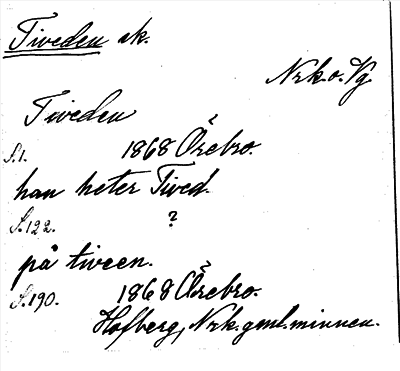 Tiveden sk.
Nrk o. Vg
Tiveden
S.1. 1868 Örebro.
han heter Tived.
S.122. ?
på tiveen.
S.190. 1868 Örebro.
Hofberg, Nrk. gml. minnen.